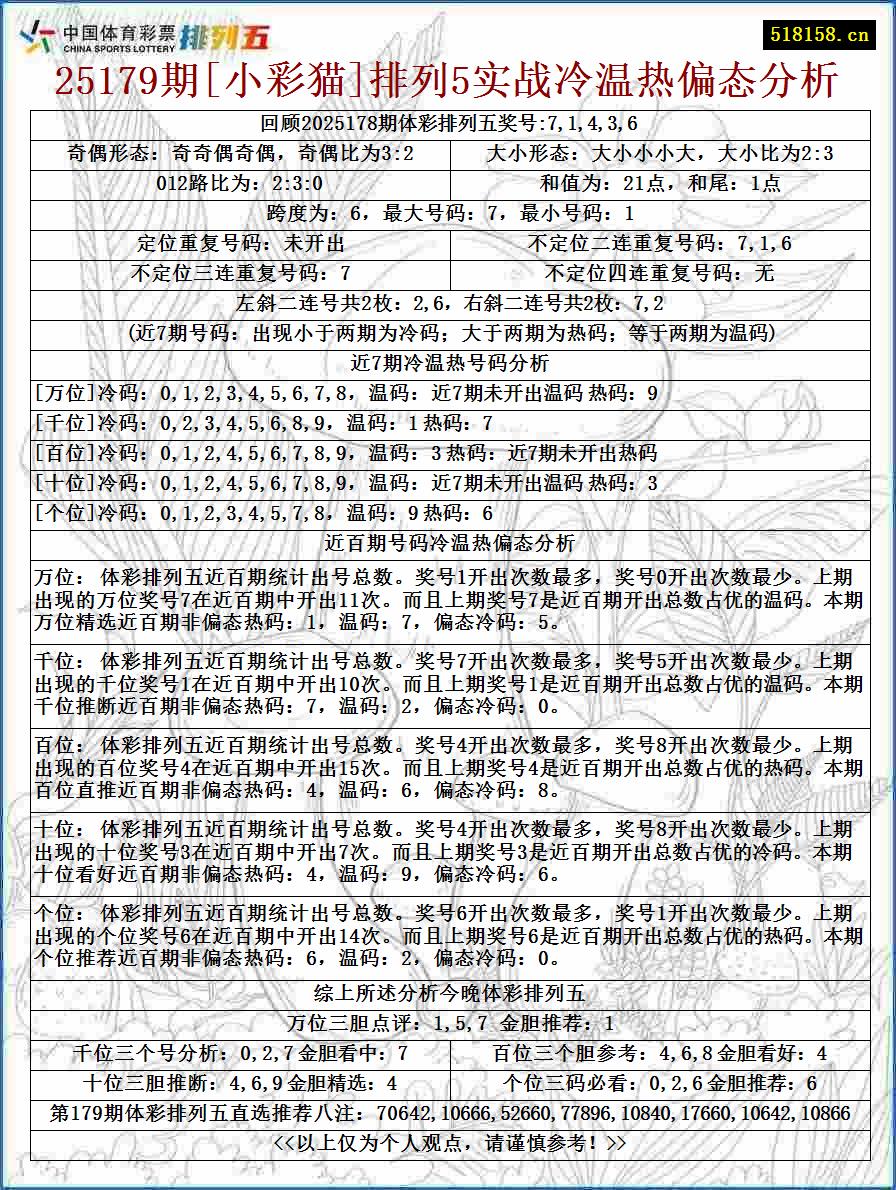 中国体育彩票 排列五
CHINA SPORTS LOTTERY
518158.cn
25179期[小彩猫]排列5实战冷温热偏态分析
回顾2025178期体彩排列五奖号:7,1,4,3,6
奇偶形态：奇奇偶奇偶，奇偶比为3:2
大小形态：大小小小大，大小比为2:3
012路比为：2:3:0
和值为：21点，和尾：1点
跨度为：6，最大号码：7，最小号码：1
定位重复号码：未开出
不定位二连重复号码：7,1,6
不定位三连重复号码：7
不定位四连重复号码：无
左斜二连号共2枚：2,6，右斜二连号共2枚：7,2
(近7期号码：出现小于两期为冷码；大于两期为热码；等于两期为温码)
近7期冷温热号码分析
[万位]冷码：0,1,2,3,4,5,6,7,8，温码：近7期未开出温码 热码：9
[千位]冷码：0,2,3,4,5,6,8,9，温码：1 热码：7
[百位]冷码：0,1,2,4,5,6,7,8,9，温码：3 热码：近7期未开出热码
[十位]冷码：0,1,2,4,5,6,7,8,9，温码：近7期未开出温码 热码：3
[个位]冷码：0,1,2,3,4,5,7,8，温码：9 热码：6
近百期号码冷温热偏态分析
万位： 体彩排列五近百期统计出号总数。奖号1开出次数最多，奖号0开出次数最少。上期
出现的万位奖号7在近百期中开出11次。而且上期奖号7是近百期开出总数占优的温码。本期
万位精选近百期非偏态热码：1，温码：7，偏态冷码：5。
千位： 体彩排列五近百期统计出号总数。奖号7开出次数最多，奖号5开出次数最少。上期
出现的千位奖号1在近百期中开出10次。而且上期奖号1是近百期开出总数占优的温码。本期
千位推断近百期非偏态热码：7，温码：2，偏态冷码：0。
百位： 体彩排列五近百期统计出号总数。奖号4开出次数最多，奖号8开出次数最少。上期
出现的百位奖号4在近百期中开出15次。而且上期奖号4是近百期开出总数占优的热码。本期
百位直推近百期非偏态热码：4，温码：6，偏态冷码：8。
十位： 体彩排列五近百期统计出号总数。奖号4开出次数最多，奖号8开出次数最少。上期
出现的十位奖号3在近百期中开出7次。而且上期奖号3是近百期开出总数占优的冷码。本期
十位看好近百期非偏态热码：4，温码：9，偏态冷码：6。
个位： 体彩排列五近百期统计出号总数。奖号6开出次数最多，奖号1开出次数最少。上期
出现的个位奖号6在近百期中开出14次。而且上期奖号6是近百期开出总数占优的热码。本期
个位推荐近百期非偏态热码：6，温码：2，偏态冷码：0。
综上所述分析今晚体彩排列五
万位三胆点评：1,5,7 金胆推荐：1
千位三个号分析：0,2,7 金胆看中：7
百位三个胆参考：4,6,8 金胆看好：4
十位三胆推断：4,6,9 金胆精选：4
个位三码必看：0,2,6 金胆推荐：6
第179期体彩排列五直选推荐八注：70642,10666,52660,77896,10840,17660,10642,10866
<<以上仅为个人观点，请谨慎参考！>>